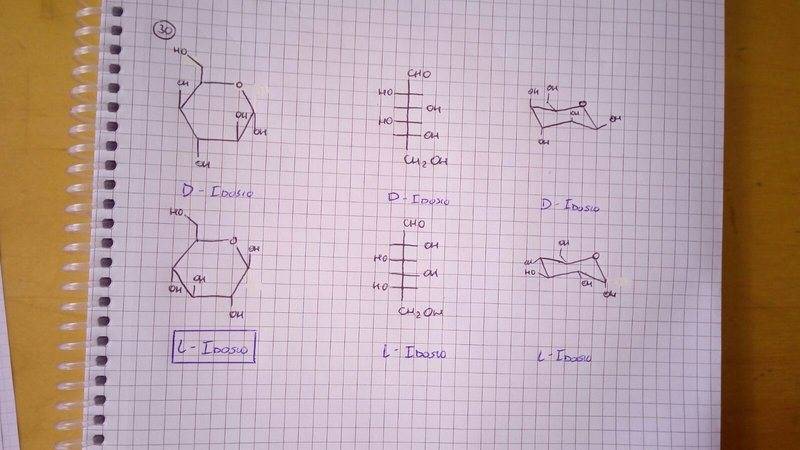 30
HO
OH
O
OH
OH
OH
D-IDOSIO
CHO
HO
OH
HO
OH
CH2OH
D-IDOSIO
OH
OH
O
OH
OH
OH
D-IDOSIO
HO
O
OH
OH
OH
OH
L-IDOSIO
CHO
OH
HO
OH
HO
CH2OH
L-IDOSIO
OH
O
OH
HO
OH
OH
L-IDOSIO